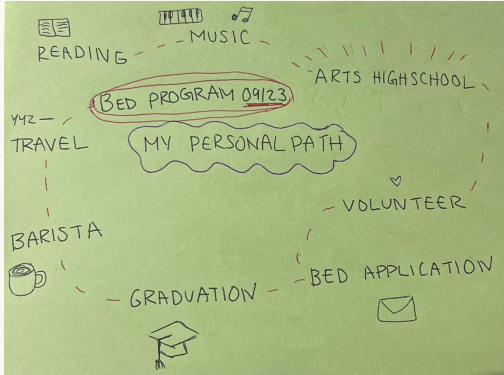 READING
MUSIC
ARTS HIGHSCHOOL
BED PROGRAM 09/23
YYZ —
TRAVEL
MY PERSONAL PATH
VOLUNTEER
BARISTA
BED APPLICATION
GRADUATION